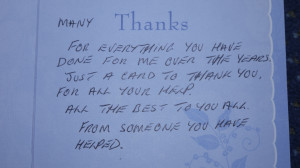 MANY Thanks
FOR EVERYTHING YOU HAVE
DONE FOR ME OVER THE YEARS.
JUST A CARD TO THANK YOU.
FOR ALL YOUR HELP.
ALL THE BEST TO YOU ALL.
FROM SOMEONE YOU HAVE
HELPED.